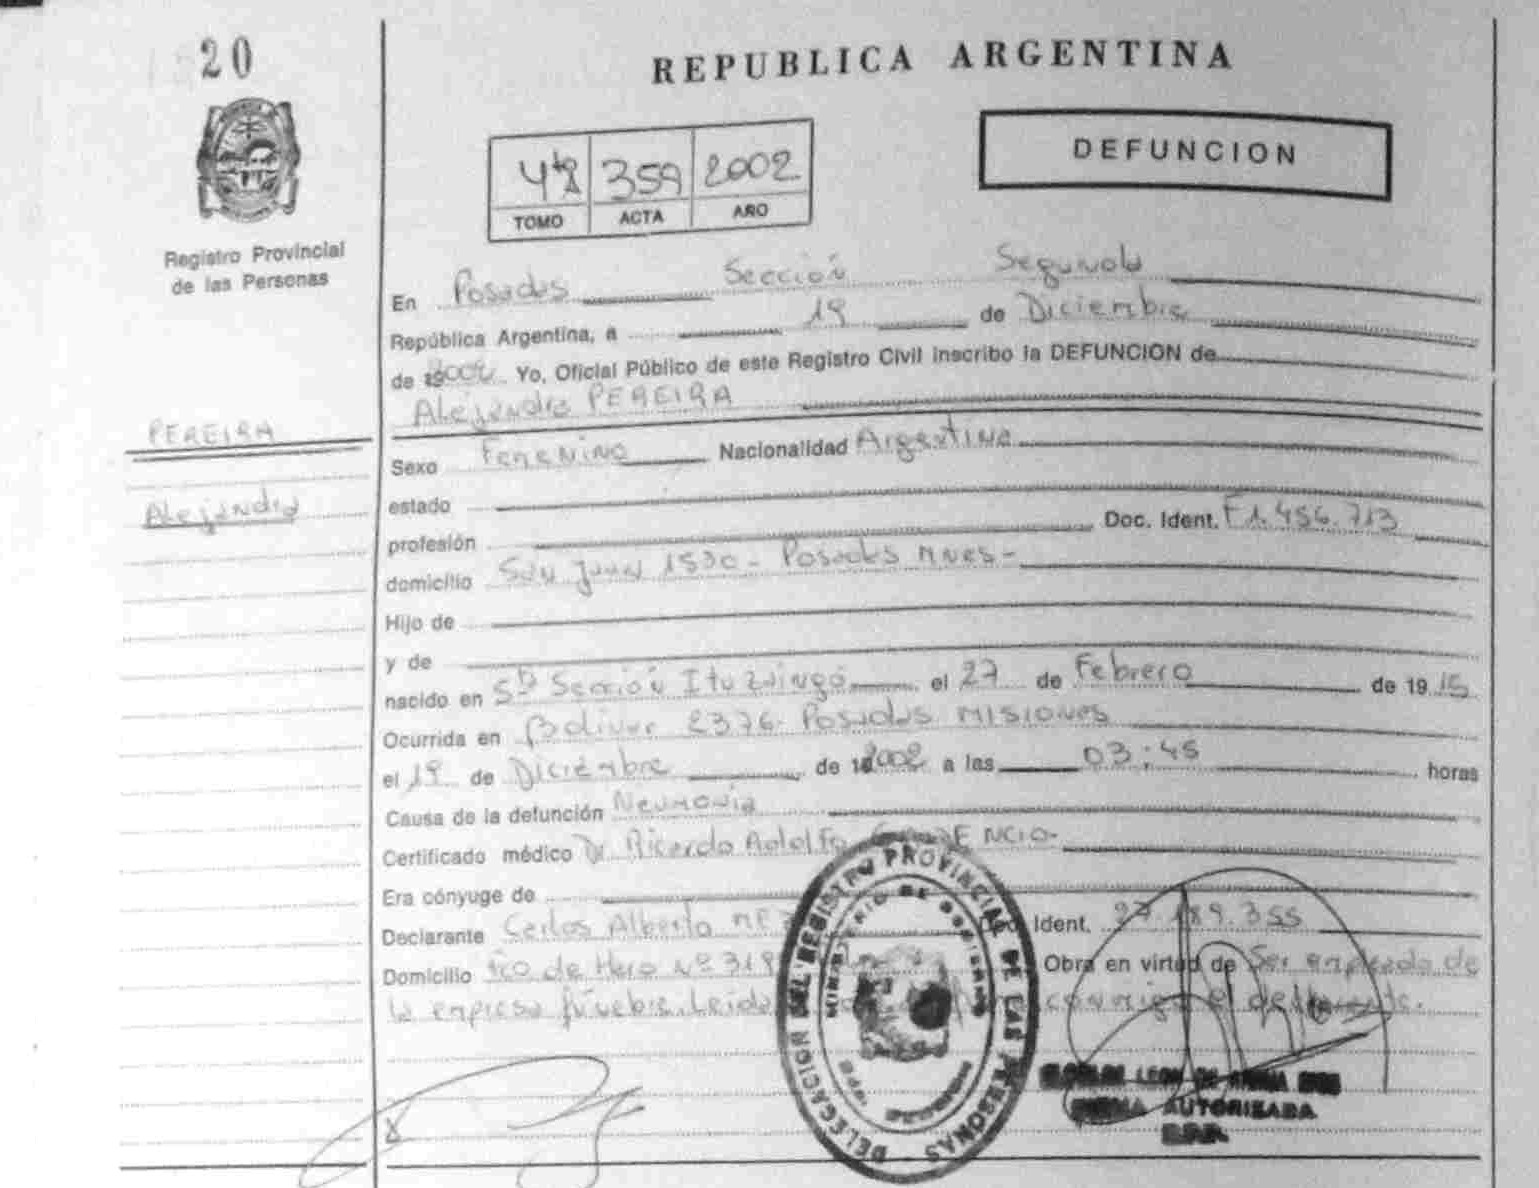 20
REPUBLICA ARGENTINA
DEFUNCION
4ta 359 2002
TOMO ACTA AÑO
Registro Provincial
de las Personas
En Posadas Sección Segunda
República Argentina, a 19 de Diciembre
de 192002 Yo, Oficial Público de este Registro Civil inscribo la DEFUNCION de
Alejandra PEREIRA
PEREIRA
Alejandra
Sexo Femenino Nacionalidad Argentina
estado
profesión Doc. Ident. F1.456.713
domicilio San Juan 1530 - Posadas Mnes -
Hijo de
y de
nacido en 5ta Sección Ituzaingó el 27 de Febrero de 1915
Ocurrida en Bolivar 2376 - Posadas MISIONES
el 19 de Diciembre de 192002 a las 03:45 horas
Causa de la defunción Neumonía
Certificado médico Dr. Ricardo Adolfo
Era cónyuge de
Declarante Carlos Alberto Doc. Ident. 27.189.355
Domicilio Fco de Haro Nº 318 Obra en virtud de Ser empleado de
la empresa fúnebre. Leida conmigo el declarante.
DELEGACION DEL REGISTRO PROVINCIAL DE LAS PERSONAS
MINISTERIO DE GOBIERNO
LEON DE
FIRMA AUTORIZADA